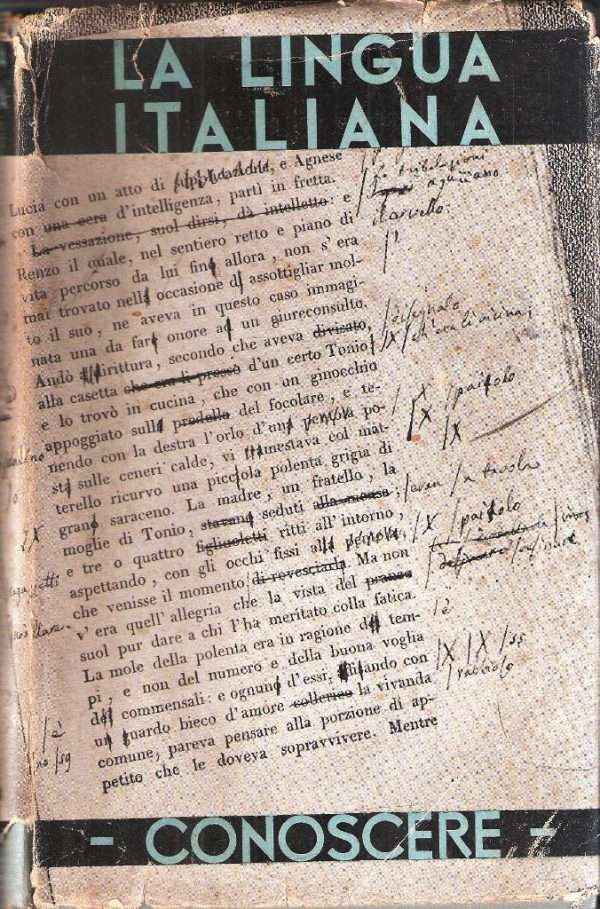 LA LINGUA
ITALIANA
Lucia con un atto di , e Agnese
con una cera d'intelligenza, partì in fretta.
La vessazione, suol dirsi, dà intelletto: e
Renzo il quale, nel sentiero retto e piano di
vita percorso da lui fino allora, non s'era
mai trovato nell occasione di assottigliar mol-
to il suo, ne aveva in questo caso immagi-
nata una da fare onore ad un giureconsulto.
Andò addirittura, secondo che aveva divisato,
alla casetta che era lì presso d'un certo Tonio
e lo trovò in cucina, che con un ginocchio
appoggiato sulla predella del focolare, e te-
nendo con la destra l'orlo d'una pentola po-
sta sulle ceneri calde, vi tramestava col mat-
terello ricurvo una picciola polenta grigia di
grano saraceno. La madre, un fratello, la
moglie di Tonio, stavano seduti alla mensa;
e tre o quattro figliuoletti ritti all'intorno,
aspettando, con gli occhi fissi alla pentola,
che venisse il momento di rovesciarla. Ma non
v'era quell'allegria che la vista del pranzo
suol pur dare a chi l'ha meritato colla fatica.
La mole della polenta era in ragione dei tem-
pi, e non del numero e della buona voglia
dei commensali: e ognuno d'essi, affisando con
un guardo bieco d'amore collerico la vivanda
comune, pareva pensare alla porzione di ap-
petito che le doveva sopravvivere. Mentre
le tribolazioni
aguzzano
il cervello
ch'era lì vicino;
paiolo
X
a tavola
X paiolo
è
X X
è
- CONOSCERE -